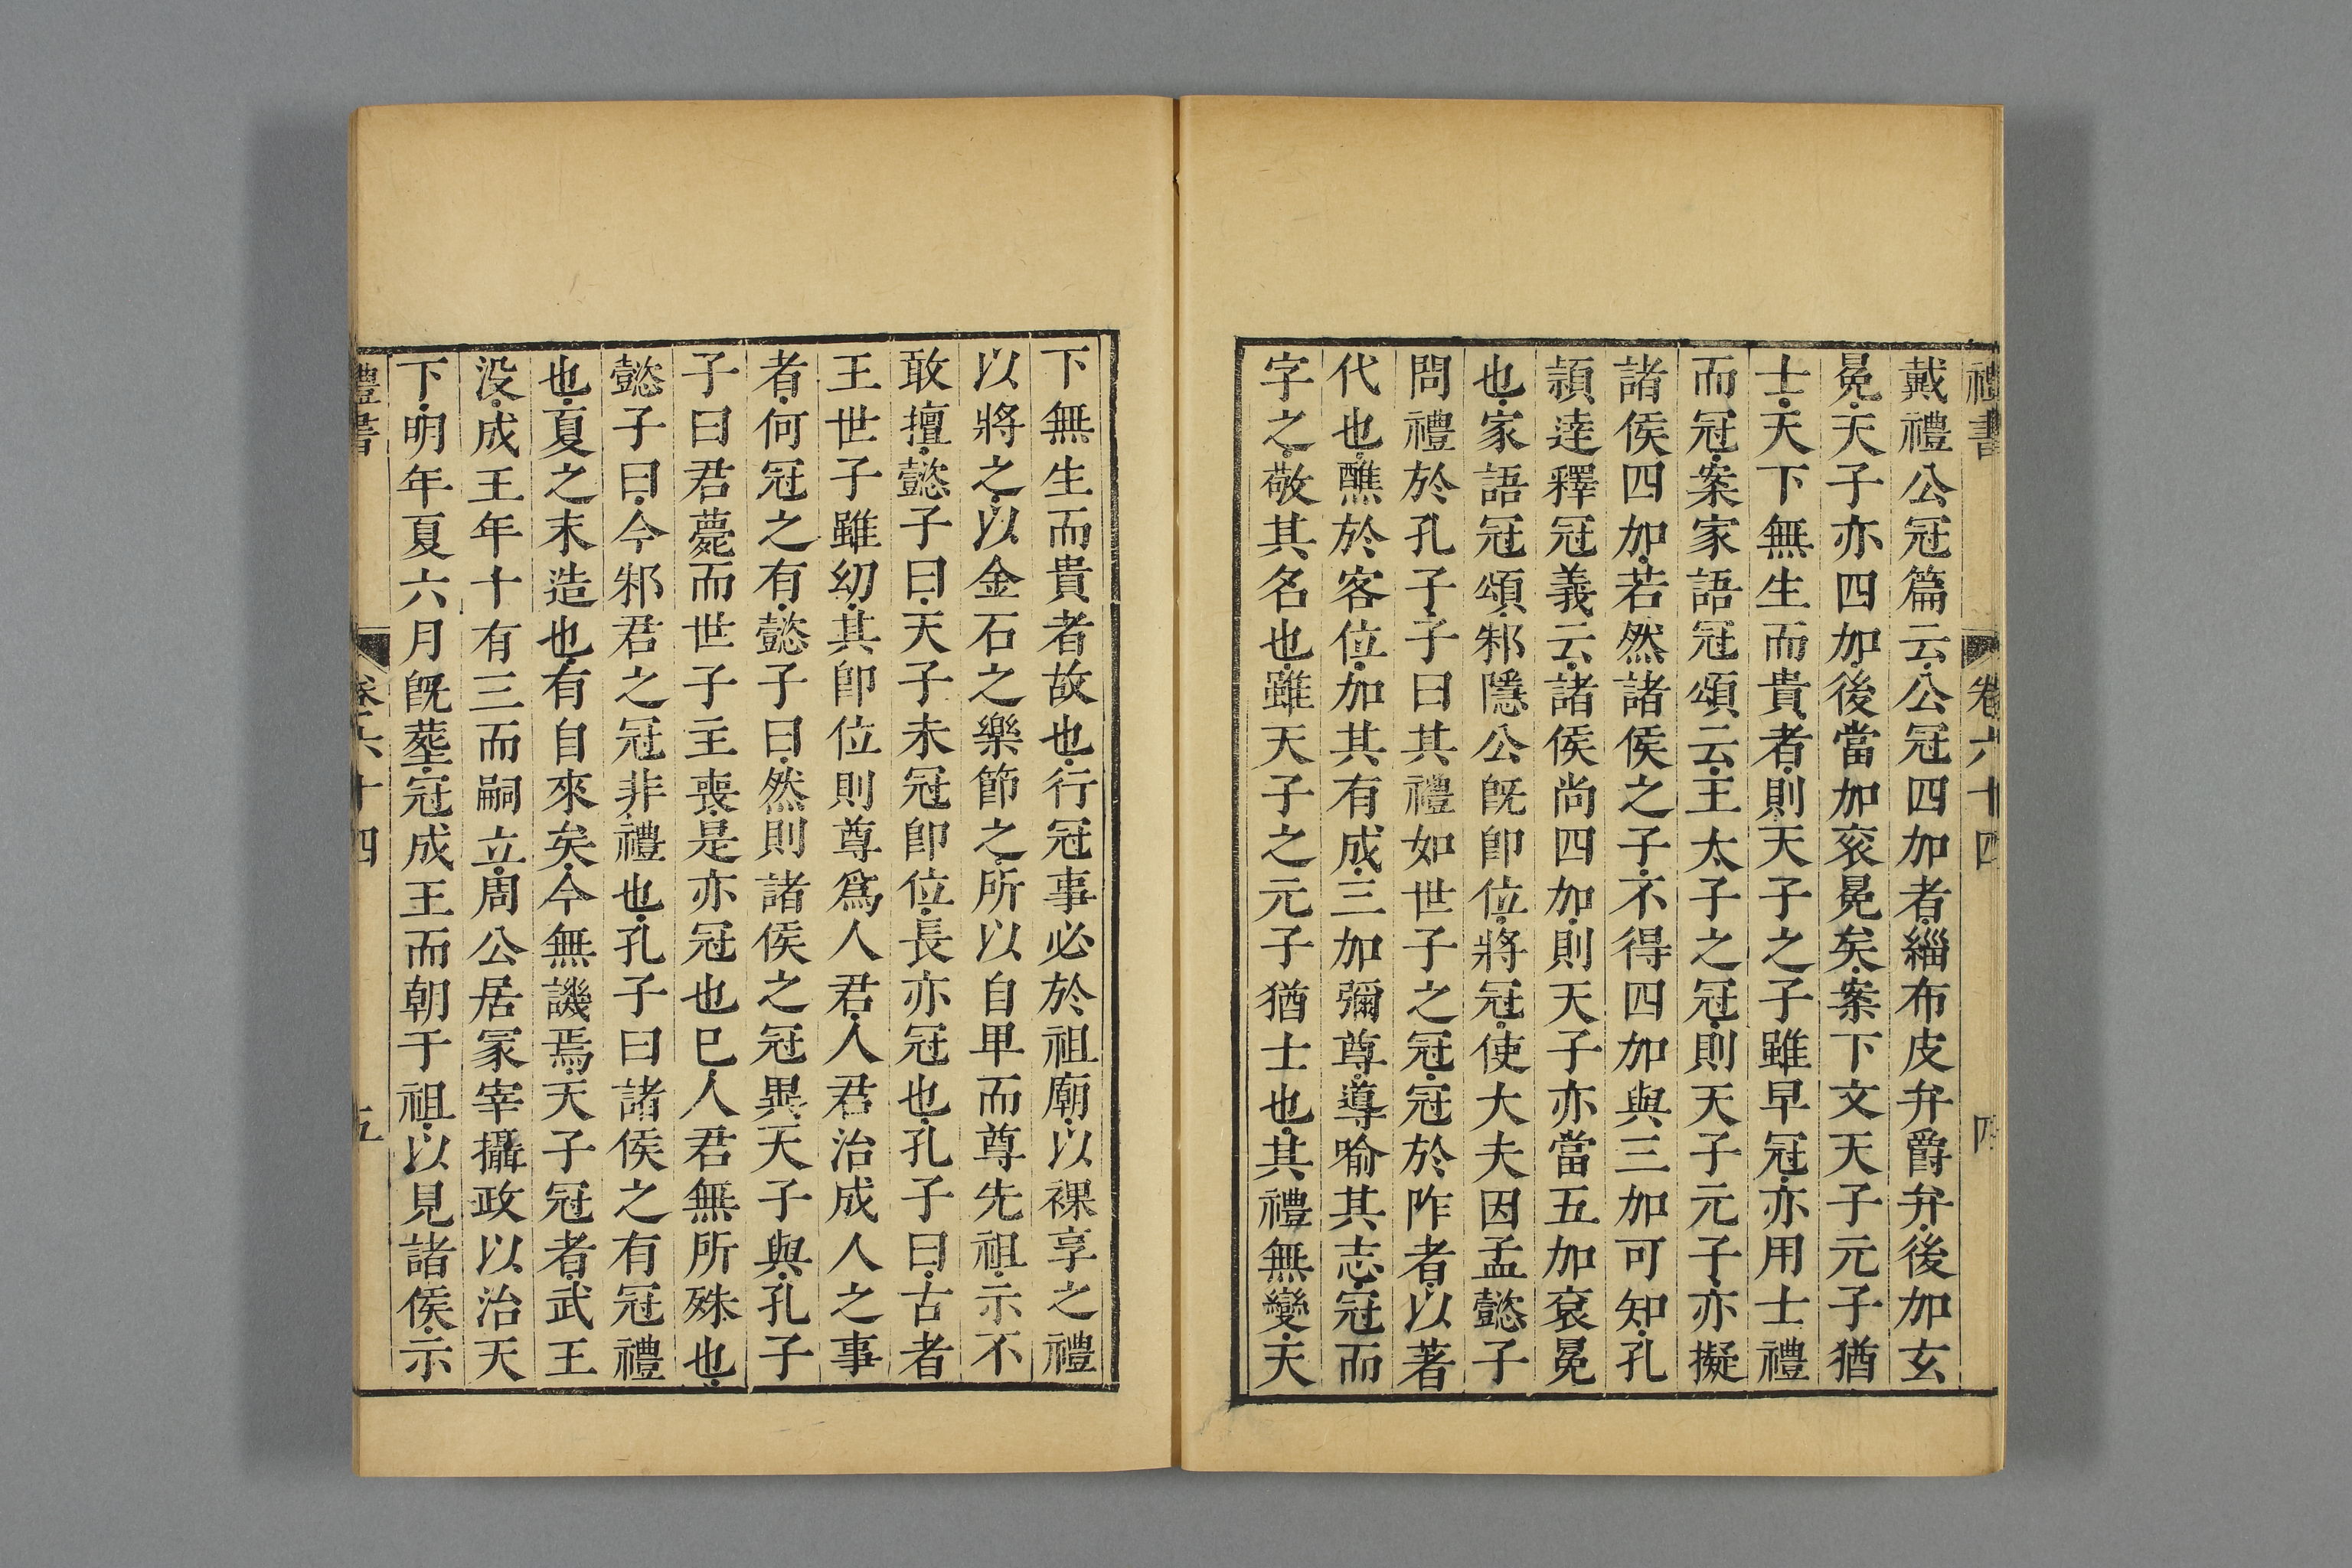 禮書 卷六十四 四
戴禮公冠篇云公冠四加者緇布皮弁爵弁後加玄
冕天子亦四加後當加衮冕矣案下文天子元子猶
士天下無生而貴者則天子之子雖早冠亦用士禮
而冠案家語冠頌云王太子之冠則天子元子亦擬
諸侯四加若然諸侯之子不得四加與三加可知孔
頴逹釋冠義云諸侯尚四加則天子亦當五加袞冕
也家語冠頌邾隱公旣卽位將冠使大夫因孟懿子
問禮於孔子子曰其禮如世子之冠冠於阼者以著
代也醮於客位加其有成三加彌尊導喻其志冠而
字之敬其名也雖天子之元子猶士也其禮無變天
下無生而貴者故也行冠事必於祖廟以祼享之禮
以將之以金石之樂節之所以自卑而尊先祖示不
敢擅懿子曰天子未冠卽位長亦冠也孔子曰古者
王世子雖幼其卽位則尊爲人君人君治成人之事
者何冠之有懿子曰然則諸侯之冠異天子與孔子
子曰君薨而世子主喪是亦冠也巳人君無所殊也
懿子曰今邾君之冠非禮也孔子曰諸侯之有冠禮
也夏之末造也有自來矣今無譏焉天子冠者武王
没成王年十有三而嗣立周公居冡宰攝政以治天
下明年夏六月旣葬冠成王而朝于祖以見諸侯示
禮書 卷六十四 五